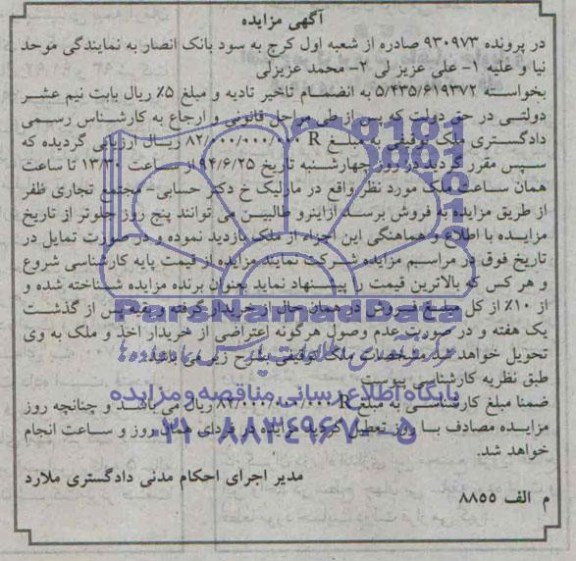 آگهی مزایده
در پرونده ۹۳۰۹۷۳ صادره از شعبه اول کرج به سود بانک انصار به نمایندگی موحد
نیا و علیه ۱- علی عزیز لی ۲- محمد عزیزلی
بخواسته ۵/۴۳۵/۶۱۹۳۷۲ به انضمام تاخیر تادیه و مبلغ ۵٪ ریال بابت نیم عشر
دولتی در حق دولت که پس از طی مراحل قانونی و ارجاع به کارشناس رسمی
دادگستری ملک توقیفی به مبلغ R ۸۲/۰۰۰/۰۰۰/۰۰۰ ریال ارزیابی گردیده که
سپس مقرر گردید در روز چهارشنبه تاریخ ۹۴/۶/۲۵ از ساعت ۱۳/۳۰ تا ساعت
همان ساعت ملک مورد نظر واقع در مارلیک خ دکتر حسابی- مجتمع تجاری ظفر
از طریق مزایده به فروش برسد ازاینرو طالبین می توانند پنج روز جلوتر از تاریخ
مزایده با اطلاع و هماهنگی این اجراء از ملک بازدید نموده و در صورت تمایل در
تاریخ فوق در مراسم مزایده شرکت نمایند مزایده از قیمت پایه کارشناسی شروع
و هر کس که بالاترین قیمت را پیشنهاد نماید بعنوان برنده مزایده شناخته شده و
از ۱۰٪ از کل مبلغ فروش در همان حال از خریدار گرفته و بقیه پس از گذشت
یک هفته و در صورت عدم وصول هرگونه اعتراضی از خریدار اخذ و ملک به وی
تحویل خواهد شد مشخصات ملک توقیفی بشرح زیر می باشد:
طبق نظریه کارشناسی پیوست
ضمنا مبلغ کارشناسی به مبلغ R ۸۲/۰۰۰/۰۰۰/۰۰۰ ریال می باشد و چنانچه روز
مزایده مصادف با روز تعطیل گردید مزایده در فردای همان روز و ساعت انجام
خواهد شد.
مدیر اجرای احکام مدنی دادگستری ملارد
م الف ۸۸۵۵
ParsNamadData
پایگاه اطلاع رسانی مناقصه و مزایده
۰۲۱-۸۸۳۴۹۶۷۰-۵